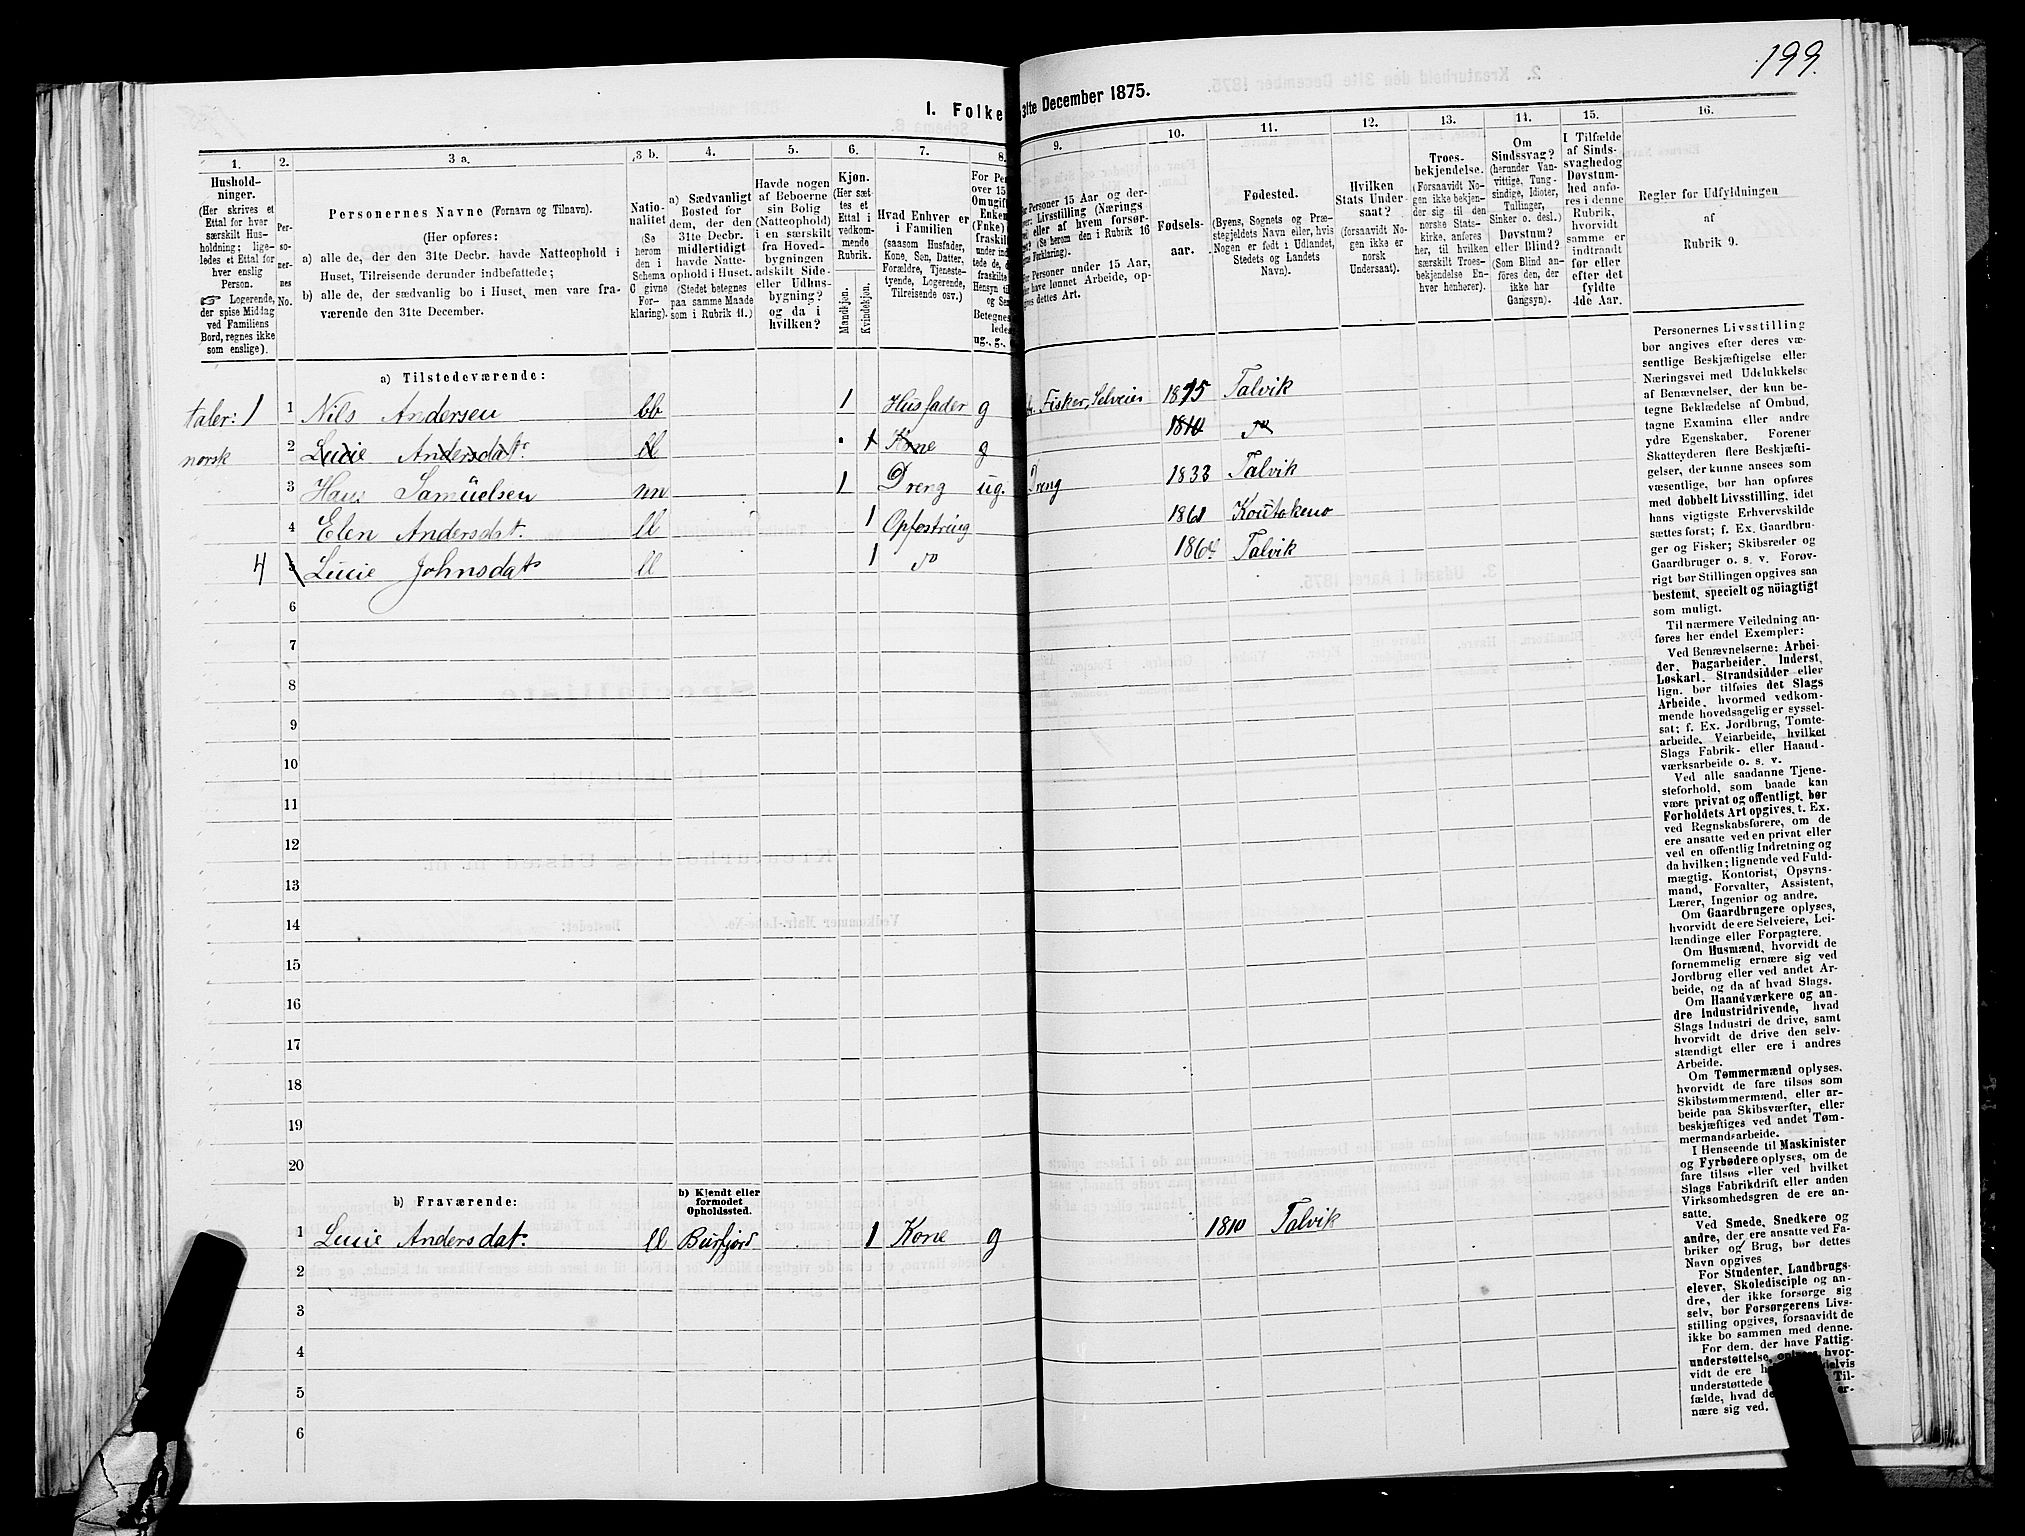 199.
1. Folke
31te December 1875.
1.
2.
3 a.
3 b.
4.
5.
6.
7.
8.
9.
10.
11.
12.
13.
14.
15.
16.
Hushold-
ninger.
(Her skrives et
Ettal for hver
særskilt Hus-
holdning; lige-
ledes et Ettal for
hver enslig
Person.
☞ Logerende,
der spise Middag
ved Familiens
Bord, regnes ikke
som enslige).
Per-
so-
ner-
nes
No.
Personernes Navne (Fornavn og Tilnavn).
(Her opføres:
a) alle de, der den 31te Decbr. havde Natteophold i
Huset, Tilreisende derunder indbefattede;
b) alle de, der sædvanlig bo i Huset, men vare fra-
værende den 31te December.
Natio-
nalitet
(Se
herom
den i
Schema
C givne
For-
klaring).
a) Sædvanligt
Bosted for
dem, der den
31te Decbr.
midlertidigt
havde Natte-
ophold i Huset.
(Stedet betegnes
paa samme Maade
som i Rubrik 11.)
Havde nogen
af Beboerne
sin Bolig
(Natteophold)
i en særskilt
fra Hoved-
bygningen
adskilt Side-
eller Udhus-
bygning?
og da i
hvilken?
Kjøn.
(Her sæt-
tes et
Ettal i
vedkom-
mende
Rubrik.
Mandkjøn.
Kvindekjøn.
Hvad Enhver er
i Familien
(saasom Husfader,
Kone, Søn, Datter,
Forældre, Tjeneste-
tyende, Logerende,
Tilreisende osv.)
For Pe
over 15
Om ugift
Enken
(Fnke)
fraskil
ug., g.,
Fødsels-
aar.
Fødested.
(Byens, Sognets og Præ-
stegjeldets Navn eller, hvis
Nogen er født i Udlandet,
Stedets og Landets
Navn).
Hvilken
Stats Under-
saat?
(forsaavidt No-
gen ikke er
norsk
Undersaat).
Troes-
bekjendelse.
(Forsaavidt No-
gen ikke bekjen-
der sig til den
norske Stats-
kirke, anføres
her, til hvilken
særskilt Troes-
bekjendelse En-
hver henhører).
Om
Sindssvag?
(herunder Van-
vittige, Tung-
sindige, Idioter,
Tullinger,
Sinker o. desl.)
Døvstum?
eller Blind?
(Som Blind an-
føres den, der
ikke har
Gangsyn).
I Tilfælde
af Sinds-
svaghedog
Døvstum-
hed anfø-
res i denne
Rubrik,
hvorvidt
samme er
indtraadt
før eller
efter det
fyldte
4de Aar.
Regler for Udfyldningen
af
Rubrik 9.
a) Tilstedeværende:
taler: 1 1 Nils Andersen bb 1 Husfader g Fisker, Selveier Talvik
norsk 2 Lucie Andersdatr ll 1 Kone g 1810 do
3 Hans Samuelsen nn 1 Dreng ug. Dreng 1833 Talvik
4 Elen Andersdatr. ll 1 Opfostring 1861 Koutokeno
4 5 Lucie Johnsdatr ll 1 do 1864 Talvik
6
7
8
9
10
11
12
13
14
15
16
17
18
19
20
b) Fraværende:
b) Kjendt eller
formodet
Opholdssted.
1 Lucie Andersdatr. ll Burfjord 1 Kone g 1810 Talvik
2
3
4
5
6
Personernes Livsstilling
bør angives efter deres væ-
sentlige Beskjæftigelse eller
Næringsvei med Udelukkelse
af Benævnelser, der kun be-
tegne Beklædelse af Ombud,
tagne Examina eller andre
ydre Egenskaber. Forener
Skatteyderen flere Beskjæfti-
gelser, der kunne ansees som
væsentlige, bør han opføres
med dobbelt Livsstilling, idet
hans vigtigste Erhvervskilde
sættes først; f. Ex. Gaardbru-
ger og Fisker; Skibsreder og
Gaardbruger o. s. v. Forøv-
rigt bør Stillingen opgives saa
bestemt, specielt og nöiagtigt
som muligt.
Til nærmere Veiledning an-
føres her endel Exempler:
Ved Benævnelserne: Arbei-
der, Dagarbeider, Inderst,
Løskarl, Strandsidder eller
lign. bør tilføies det Slags
Arbeide, hvormed vedkom-
mende hovedsagelig er syssel-
sat; f. Ex. Jordbrug, Tomte-
arbeide, Veiarbeide, hvilket
Slags Fabrik- eller Haand-
værksarbeide o. s. v.
Ved alle saadanne Tjene-
steforhold, som baade kan
være privat og offentligt, bør
Forholdets Art opgives, t. Ex.
ved Regnskabsførere, om de
ere ansatte ved en privat eller
ved en offentlig Indretning og
da hvilken; lignende ved Fuld-
mægtig, Kontorist, Opsyns-
mand, Forvalter, Assistent,
Lærer, Ingeniør og andre.
Om Gaardbrugere oplyses,
hvorvidt de ere Selveiere, Lei-
lændinge eller Forpagtere.
Om Husmænd, hvorvidt de
fornemmelig ernære sig ved
Jordbrug eller ved andet Ar-
beide, og da af hvad Slags.
Om Haandværkere og an-
dre Industridrivende, hvad
Slags Industri de drive, samt
hvorvidt de drive den selv-
stændigt eller ere i andres
Arbeide.
Om Tømmermænd oplyses,
hvorvidt de fare tilsøs som
Skibstømmermænd, eller ar-
beide paa Skibsværfter, eller
beskjæftiges ved andet Tøm-
mermandsarbeide.
I Henseende til Maskinister
og Fyrbødere oplyses, om de
fare tilsøs eller ved hvilket
Slags Fabrikdrift eller anden
Virksomhedsgren de ere an-
satte.
Ved Smede, Snedkere og
andre, der ere ansatte ved Fa-
briker og Brug, bør dettes
Navn opgives
For Studenter, Landbrugs-
elever, Skoledisciple og an-
dre, der ikke forsørge sig
selv, bør Forsørgerens Livs-
stilling opgives, forsaavidt de
ikke bo sammen med denne.
For dem, der have Fattig-
understøttelse,
vidt de ere
understøttede
fælde, hvad
nære sig ved.